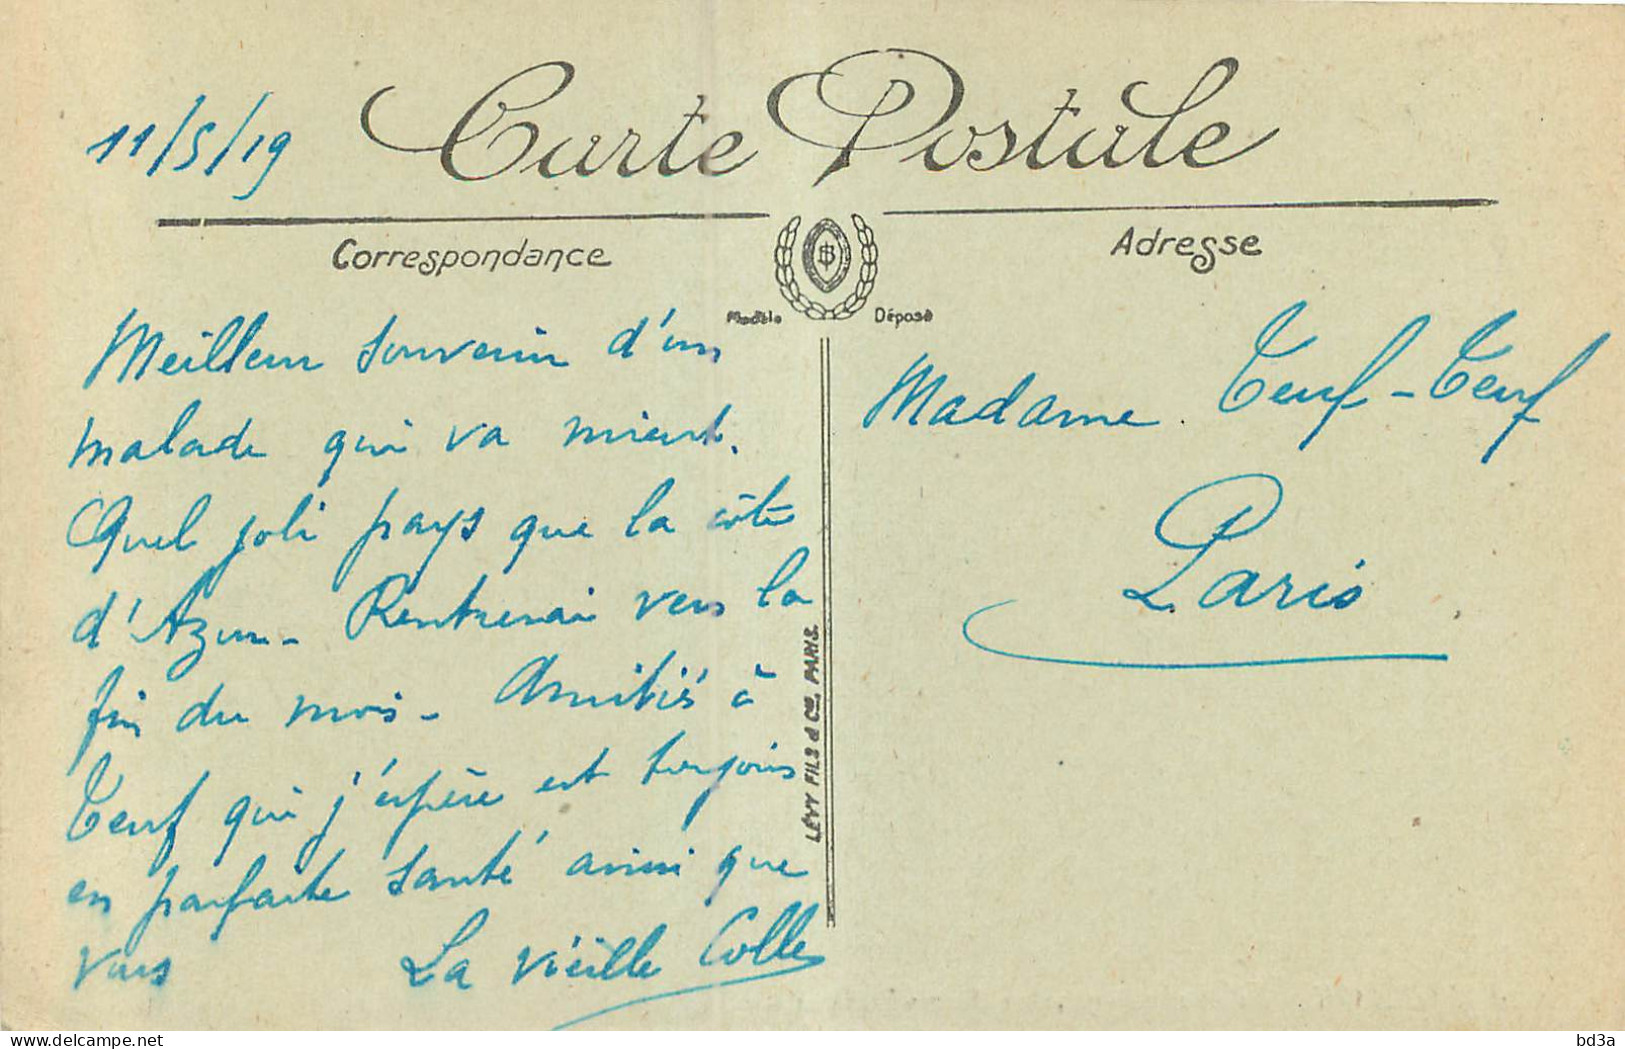 11/5/19
Carte Postale
Correspondance
Adresse
Modèle Déposé
Meilleur souvenir d'un
malade qui va mieux.
Quel joli pays que la côte
d'Azur - Rentrerai vers la
fin du mois - Amitiés à
Teuf qui j'espère est toujours
en parfaite santé ainsi que
vous La vieille Colle
LÉVY FILS & Cie, PARIS.
Madame Teuf-Teuf
Paris
www.delcampe.net
bd3a